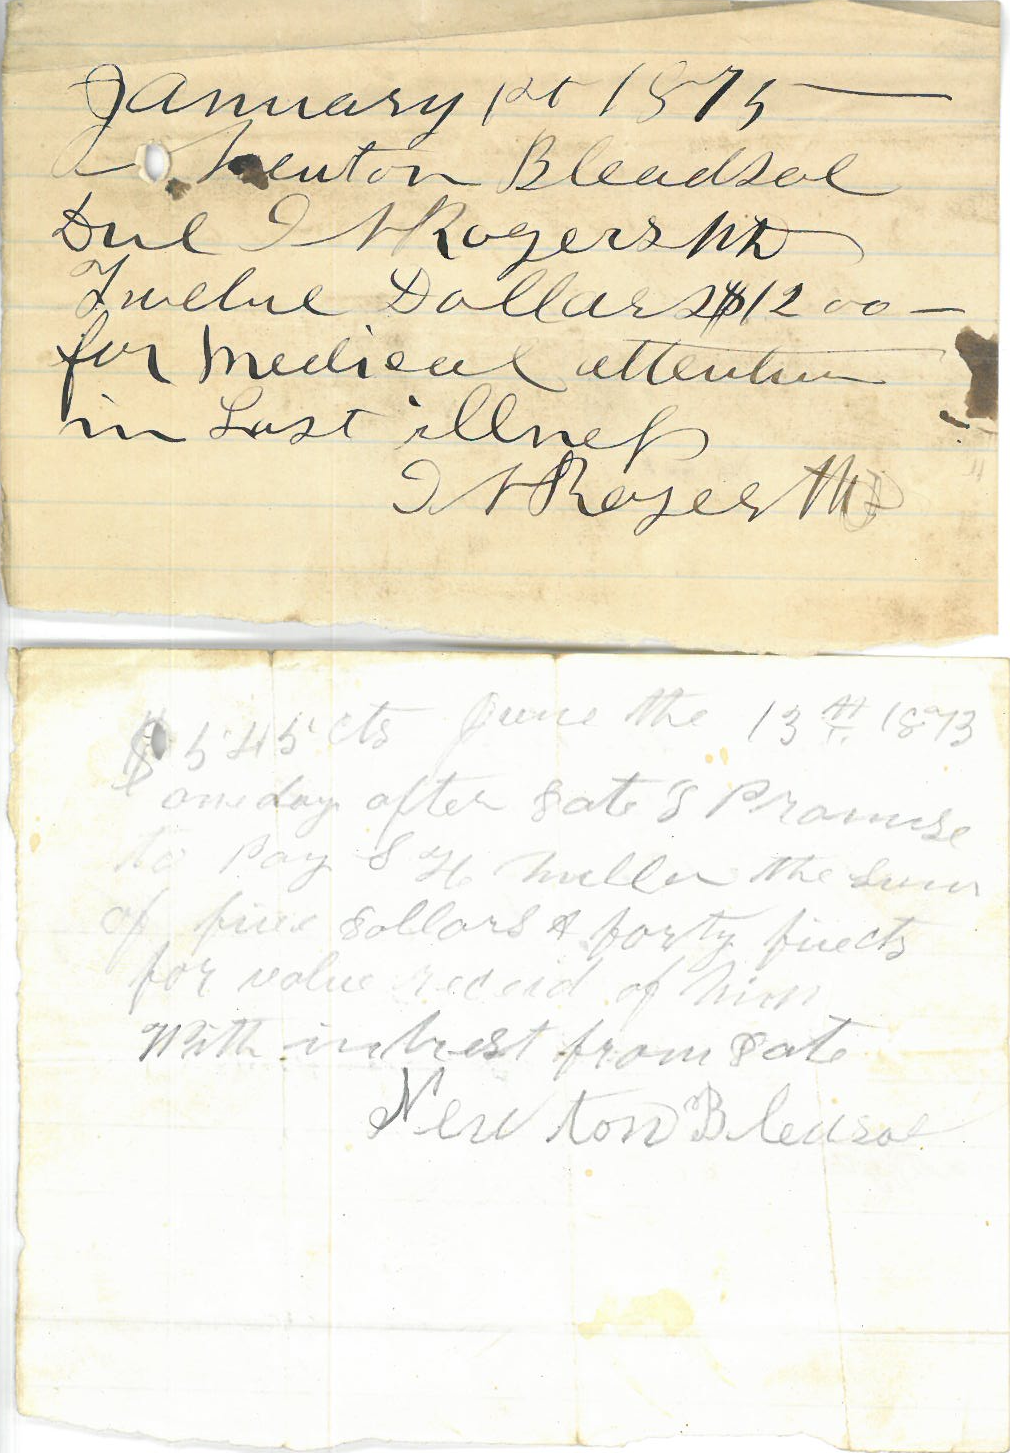 January 1st 1875
A Neuton Bleadsoe
Due I N Rogers MD
Twelve Dollars $12 00
for Medical attention
in Last illness
I N Rogers MD
$5 45 cts June the 13th 1873
one day after date I Promise
to Pay S H Miller the sum
of five dollars & forty five cts
for value receid of him
With intrest from date
Newton Bledsoe